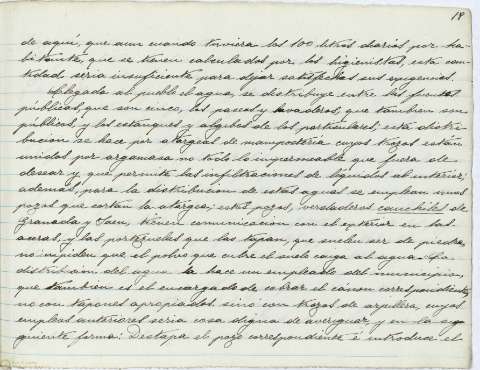 18
de aquí, que aun cuando tuviera los 100 litros diarios por ha-
bitante, que se tienen calculados por los higienistas, esta can-
tidad sería insuficiente para dejar satisfechas sus exigencias.
Llegada al pueblo el agua, se distribuye entre las fuentes
públicas, que son cinco, los pascos y lavaderos, que tambien son
públicos y los estanques y algibes de los particulares; esta distri-
bucion se hace por atargeas de mampostería cuyos trozos están
unidos por argamasa no todo lo impermeable que fuera de
desear y que permite las infiltraciones de líquidos al interior;
además, para la distribucion de estas aguas se emplean unos
pozos que cortan la atargea; estos pozos, verdaderos cauchiles de
Granada y Jaen, tienen comunicacion con el exterior en las
aceras, y las portezuelas que los tapan, que suelen ser de piedra,
no impiden que el polvo que cubre el suelo caiga al agua. La
distribucion del agua la hace un empleado del municipio,
que tambien es el encargado de cobrar el cánon correspondiente,
no con tapones apropiados sino con trozos de arpillera, cuyos
empleos anteriores sería cosa digna de averiguar, y en la si-
guiente forma: Destapa el pozo correspondiente é introduce el